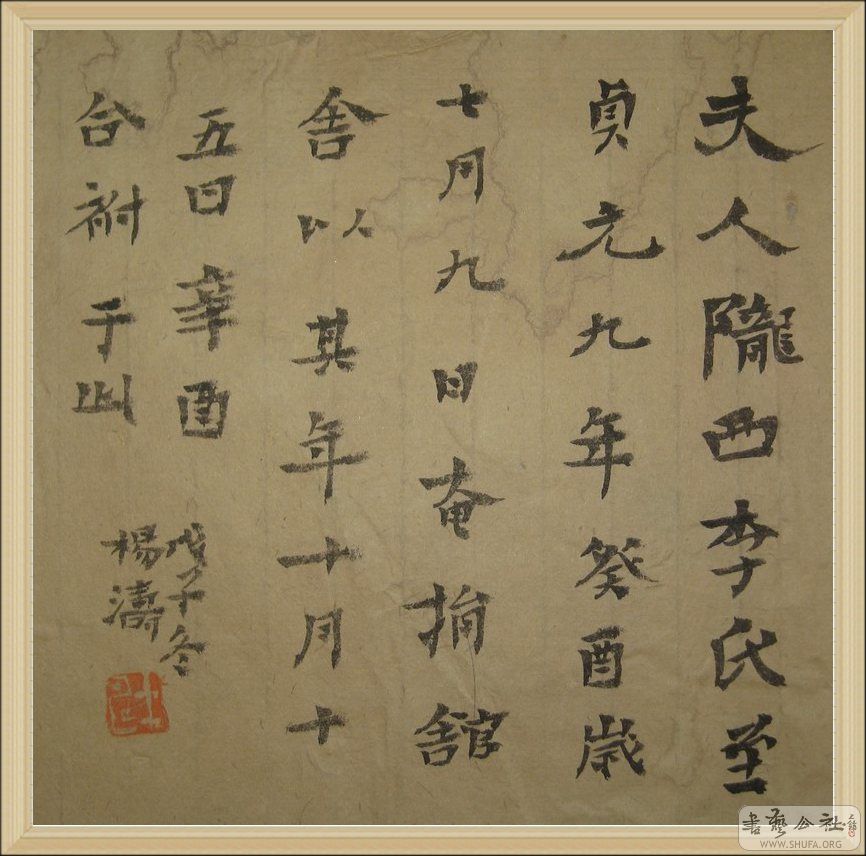 夫人隴西李氏至
貞元九年癸酉歲
七月九日奄捐舘
舍以其年十月十
五日辛酉
合祔于此
戊子冬
楊濤
書藝公社
WWW.SHUFA.ORG